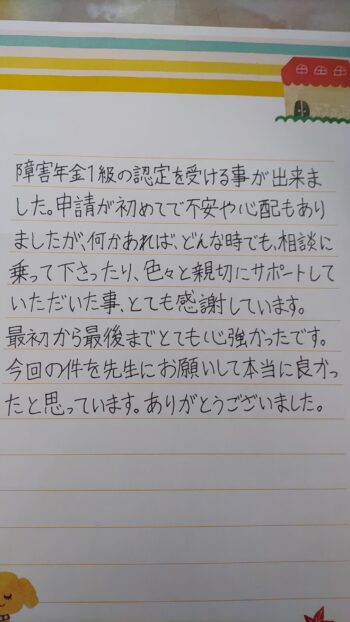 障害年金1級の認定を受ける事が出来ま
した。申請が初めてで不安や心配もあり
ましたが、何かあれば、どんな時でも、相談に
乗って下さったり、色々と親切にサポートして
いただいた事、とても感謝しています。
最初から最後までとても心強かったです。
今回の件を先生にお願いして本当に良かっ
たと思っています。ありがとうございました。